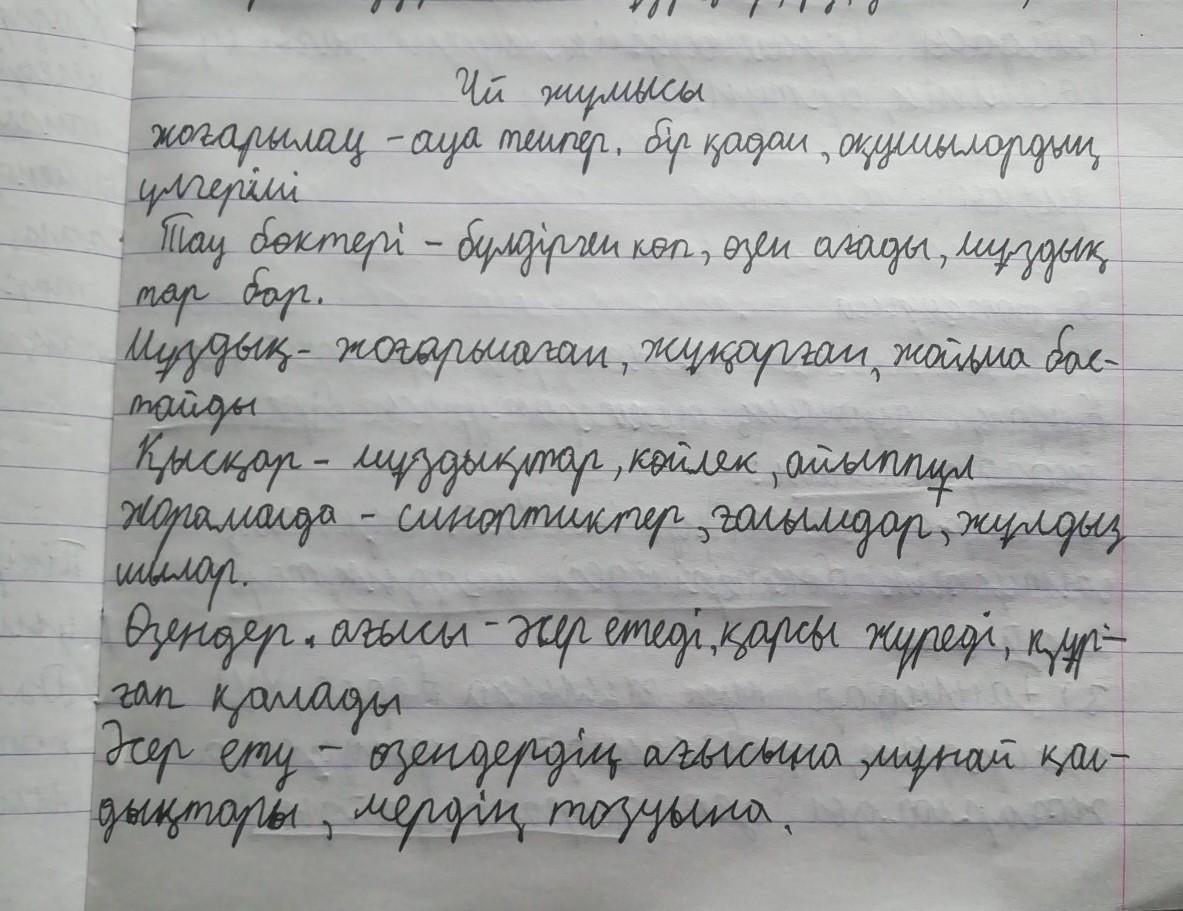 Үй жұмысы
жоғарылау - ауа темпер. бір қадам, оқушылардың
үлгерімі
Тау бөктері - бүлдірген көп, өзен ағады, мұздық
тар бар.
Мұздық - жоғарылаған, жұқарған, жойыла бас-
тайды
Қысқар - мұздықтар, көйлек, айыппұл
жорамалда - синоптиктер, ғалымдар, жұлдыз
шылар.
Өзендер. ағысы - әсер етеді, қарсы жүреді, құр-
ғап қалады
Әсер ету - өзендердің ағысына, мұнай қал-
дықтары, мердің тозуына.